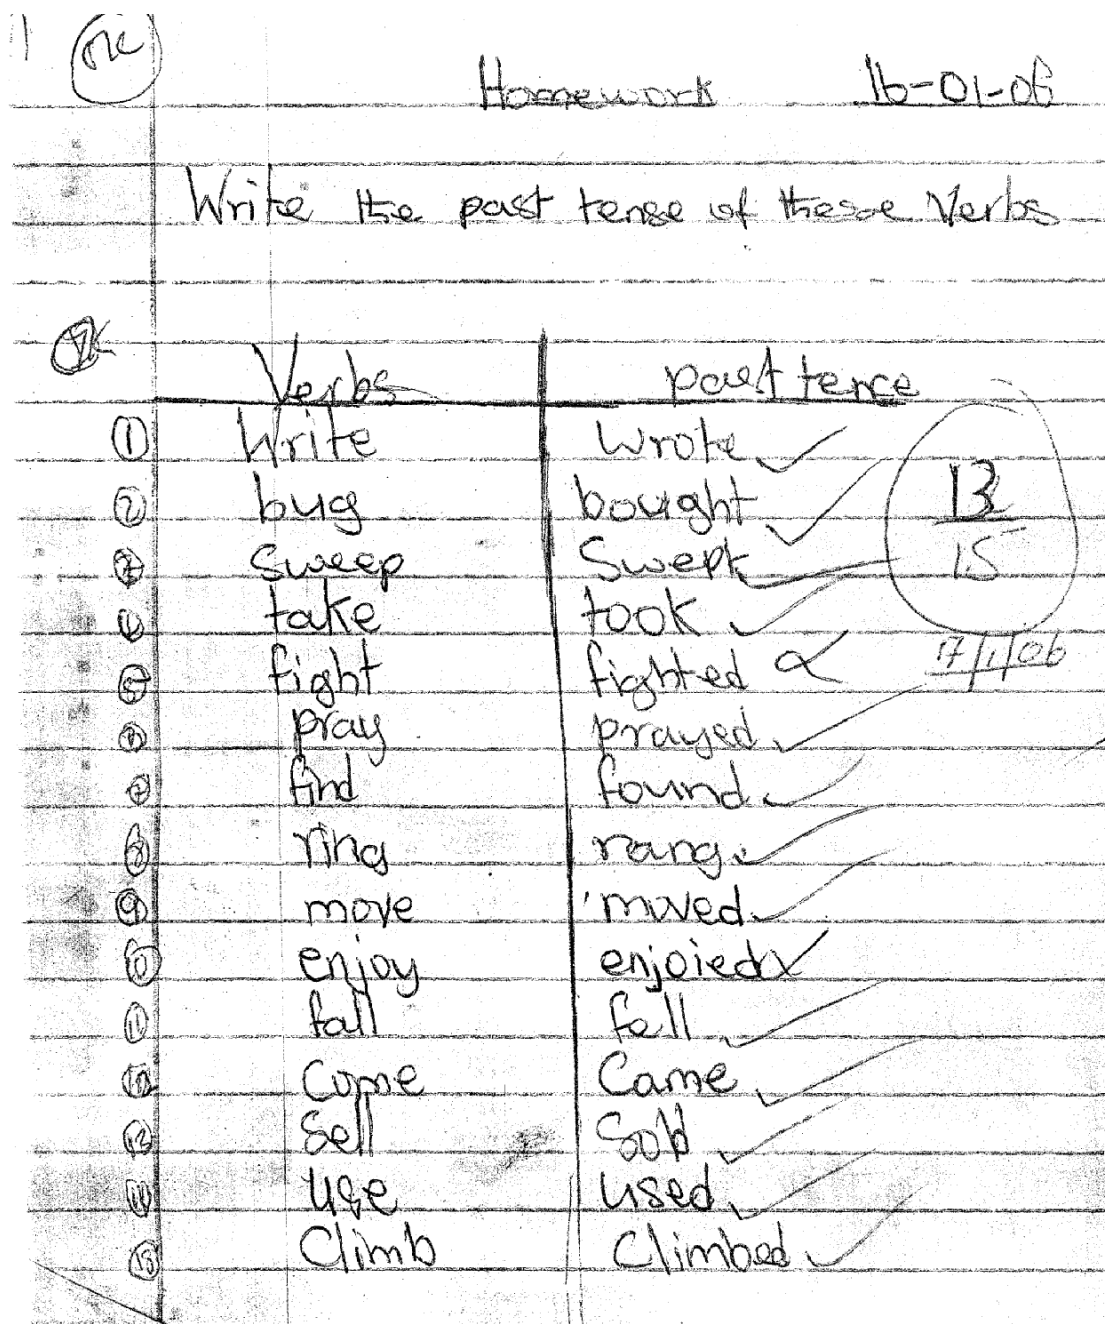 Homework 16-01-06
Write the past tense of these Verbs
Verbs past tence
1 Write Wrote
2 buy bought
3 Sweep Swept
4 take took
5 fight fighted
6 pray prayed
7 find found
8 ring rang
9 move moved
10 enjoy enjoied
11 fall fell
12 Come Came
13 Sell Sold
14 use used
15 Climb Climbed
13/15
17/1/06